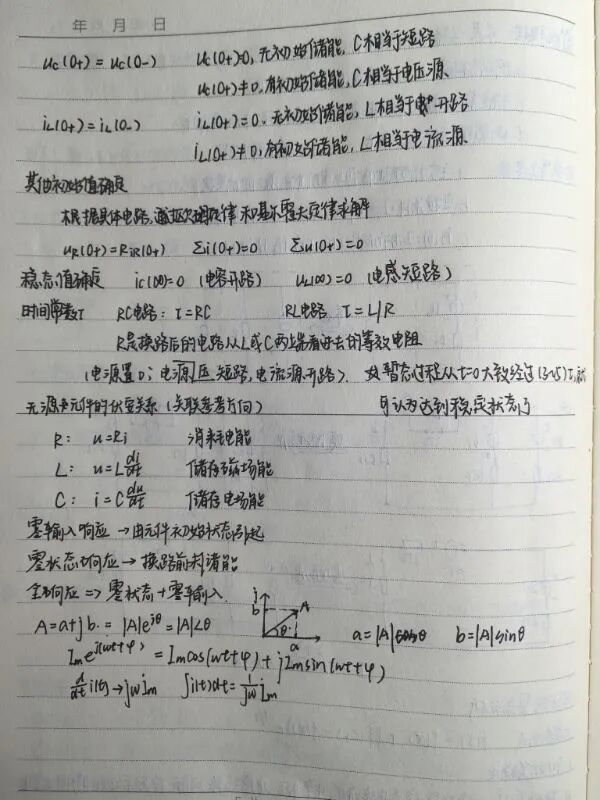 年 月 日
uc(0+) = uc(0-) uc(0+)=0, 无初始储能, C相当于短路
uc(0+)≠0, 有初始储能, C相当于电压源.
iL(0+)=iL(0-) iL(0+)=0, 无初始储能, L相当于开路
iL(0+)≠0, 有初始储能, L相当于电流源.
其他初始值确定
根据具体电路, 通过欧姆定律和基尔霍夫定律求解
uR(0+)=RiR(0+) Σi(0+)=0 Σu(0+)=0
稳态值确定 ic(∞)=0 (电容开路) uL(∞)=0 (电感短路)
时间常数τ RC电路: τ=RC RL电路 τ=L/R
R是换路后的电路从L或C两端看进去的等效电阻
(电源置0; 电压源短路, 电流源开路). 暂态过程从t=0大致经过(3~5)τ,
可认为达到稳定状态了
无源元件的伏安关系 (关联参考方向)
R: u=Ri 消耗电能
L: u=L di/dt 储存磁场能
C: i=C du/dt 储存电场能
零输入响应 → 由元件初始状态引起
零状态响应 → 换路前未储能
全响应 => 零状态+零输入.
A=a+jb = |A|e^jθ =|A|∠θ j b A θ a a=|A|cosθ b=|A|sinθ
Im e^j(ωt+φ) = Im cos(ωt+φ) + j Im sin(ωt+φ)
d/dt i(t) → jω İm ∫i(t)dt = 1/jω İm